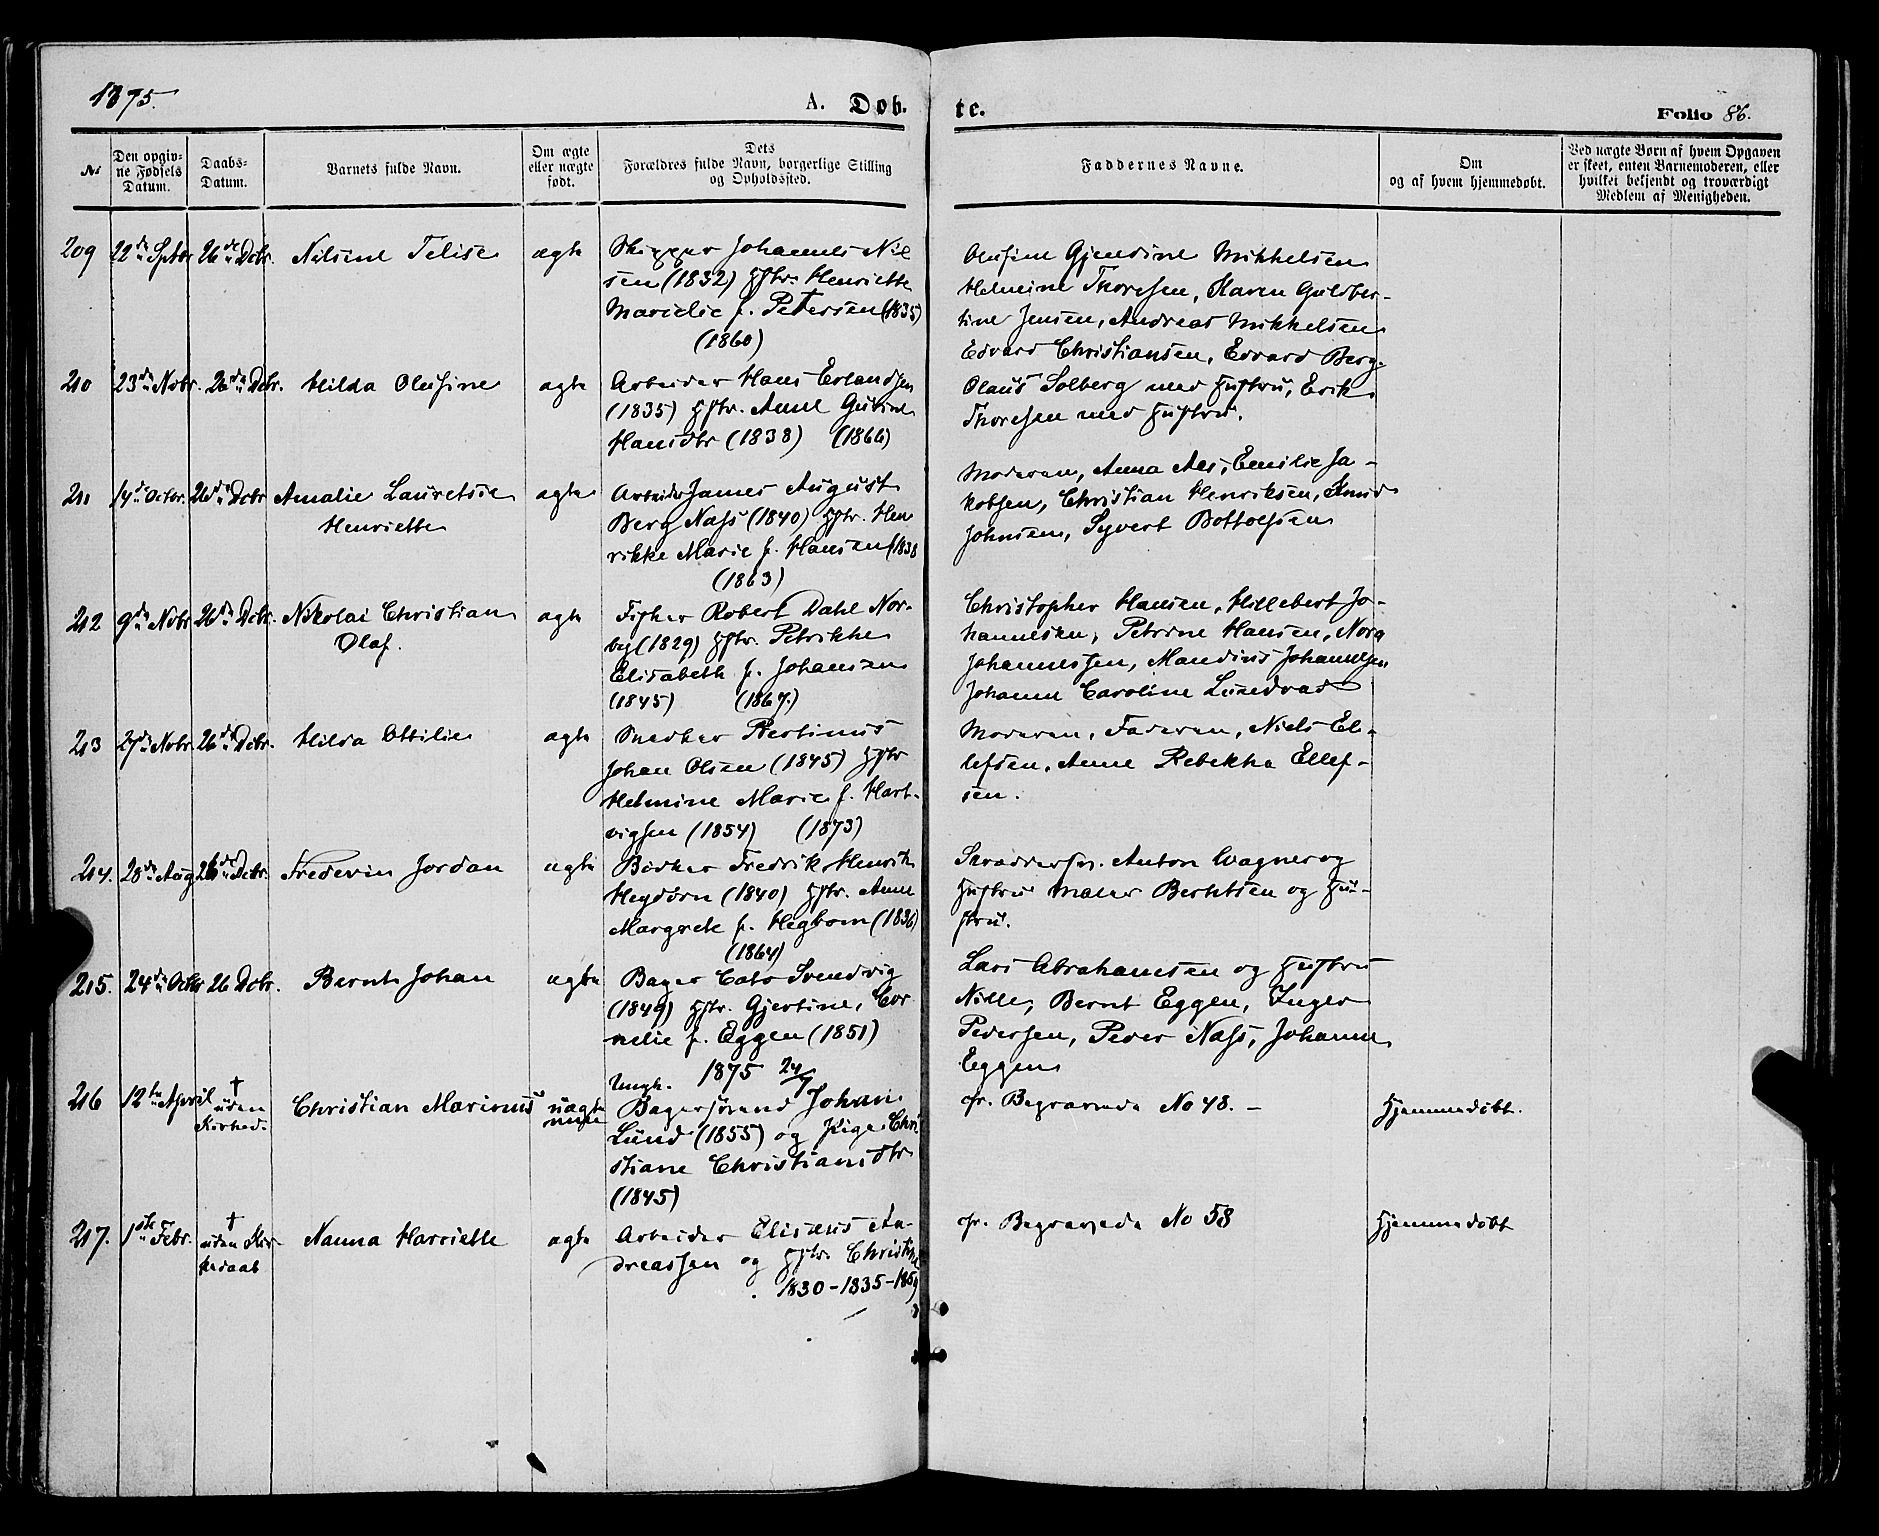 1875.
A. Døb.
te.
Folio 86.
No
Den opgiv-
ne Fødsels
Datum.
Daabs-
Datum.
Barnets fulde Navn.
Om ægte
eller uægte
født.
Dets
Forældres fulde Navn, borgerlige Stilling
og Opholdssted.
Faddernes Navne.
Om
og af hvem hjemmedøbt.
Ved uægte Børn af hvem Opgaven
er skeet, enten Barnemoderen, eller
hvilket bekjendt og troværdigt
Medlem af Menigheden.
209 22de Septbr 26de Dcbr. Nilsine Telise ægte
Skipper Johannes Niel
sen (1832) Hstr. Henriette
Marielie f. Petersen (1835)
(1860)
Olufine Gjendine Mikkelsen
Helmine Thoresen, Karen Guldber-
tine Jensen, Andreas Mikkelsen
Edvard Christiansen, Edvard Berg.
210 23de Novbr. 26de Dcbr. Hilda Olufine ægte
Arbeider Hans Erlandsen
(1835) Hstr. Anne Gurine
Hansdtr (1838) (1866)
Olaus Solberg med Hustru, Erik
Thoresen med Hustru.
211 14de Octbr. 26de Dcbr Amalie Lauretsie
Henriette
ægte
Arbeider James August
Berg Nass (1840) Hstr. Hen
rikke Marie f. Hansen (1838
(1863)
Moderen, Anna Aas, Emilie Ja-
kobsen, Christian Henriksen, Knud
Johnsen, Syvert Bottolfsen
212 9de Novbr 26de Dcbr. Nikolai Christian
Olaf.
ægte
Fisker Robert Dahl Nor-
by (1829) Hstr. Petrikke
Elisabeth f. Johansen
(1845) (1867.)
Christopher Hansen, Hillebert Jo-
hannesen, Petrine Hansen, Nora
Johannessen, Mandius Johannesen
Johanne Caroline Lundvad
213 27de Novbr. 26de Dcbr. Hilda Ottilie ægte
Snedker Bertinus
Johan Olsen (1845) Hstr
Helmine Marie f. Hart-
vigsen (1854) (1873)
Moderen, Faderen, Niels El-
lefsen, Anne Rebekka Ellef-
sen.
214. 28de Aug 26de Dcbr. Frederin Jordan ægte
Bødker Fredrik Henrik
Heydorn (1840) Hstr. Anne
Margrete f. Hegbom (1836)
(1864)
Skræddersv. Anton Wagner og
Hustru Maler Berntsen og Hu-
stru.
215. 24de Octbr 26 Dcbr. Bernt Johan ægte
Bager Cato Svendvig
(1849) Hstr. Gjertine, Cor
nelie f. Eggen (1851)
1875 24/7
Lars Abrahamsen og Hustru
Nille, Bernt Eggen, Inger
Pedersen, Peder Nass, Johanne
Eggen
216 12te April † uden
Kirked.
Christian Marinus uægte
Ungk.
Bagersvend Johan
Lund (1855) og Pige Chri
stiane Christiansdtr
(1845)
cfr. Begravede No 48. —
Hjemmedøbt.
217. 1ste Febr. †
uden Kir-
kedaab
Nanna Harriette ægte
Arbeider Elisæus An-
dreassen og Hstr. Christine
1830 - 1835 - 185
cfr. Begravede No 58
Hjemmedøbt